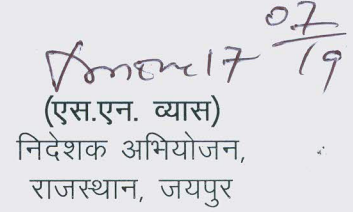 07
19
(एस.एन. व्यास)
निदेशक अभियोजन,
राजस्थान, जयपुर